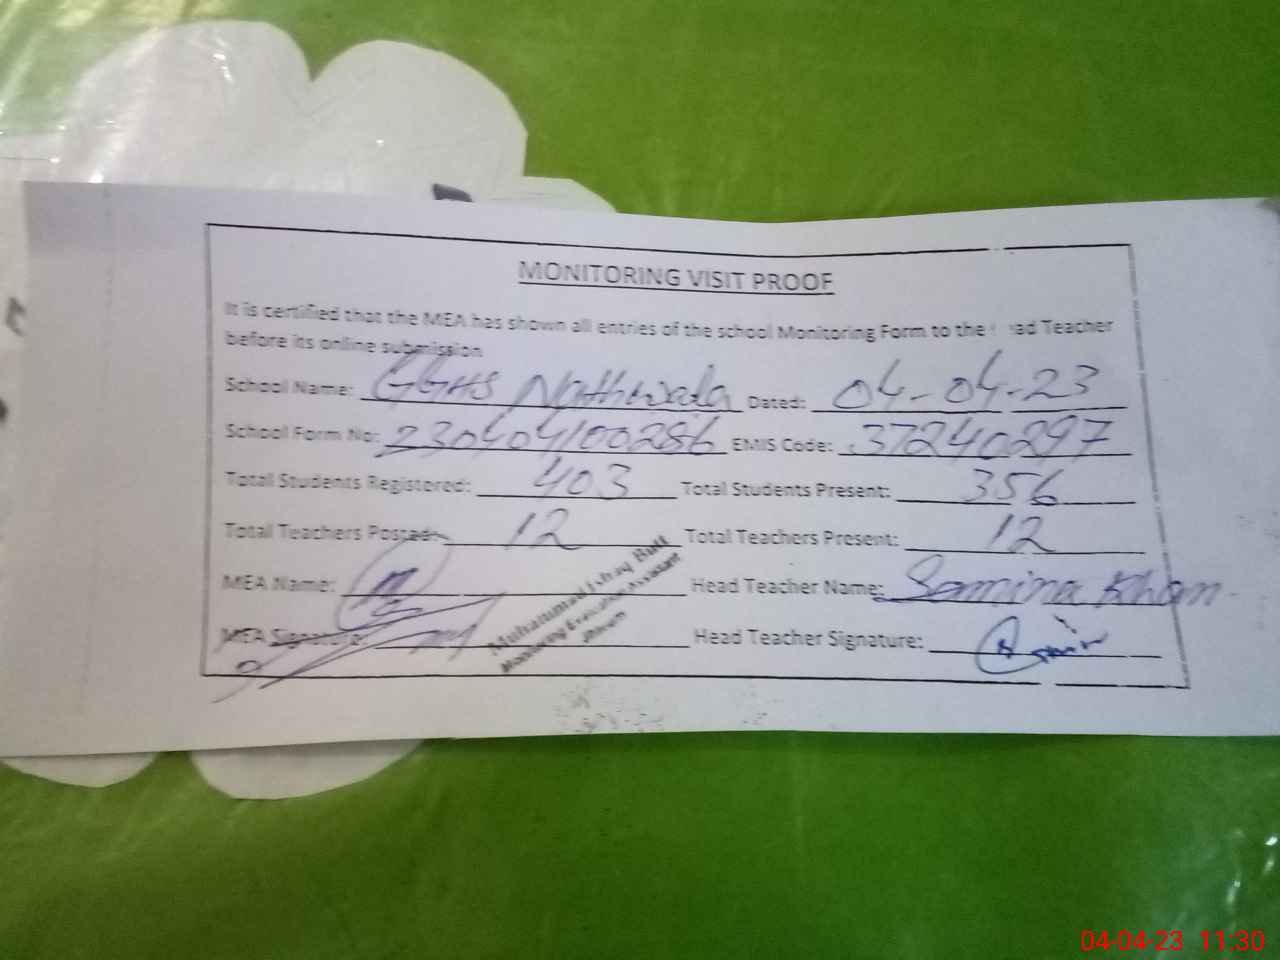 MONITORING VISIT PROOF
It is certified that the MEA has shown all entries of the school Monitoring Form to the ad Teacher
before its online submission
School Name: GGHS Nathwala Dated: 04-04-23
School Form No: 230404100286 EMIS Code: 37240297
Total Students Registered: 403 Total Students Present: 356
Total Teachers Posted: 12 Total Teachers Present: 12
MEA Name: Head Teacher Name: Samina Khan
MEA Signature: Head Teacher Signature:
Muhammad Butt
Monitoring Evaluation Assistant
04-04-23 11:30